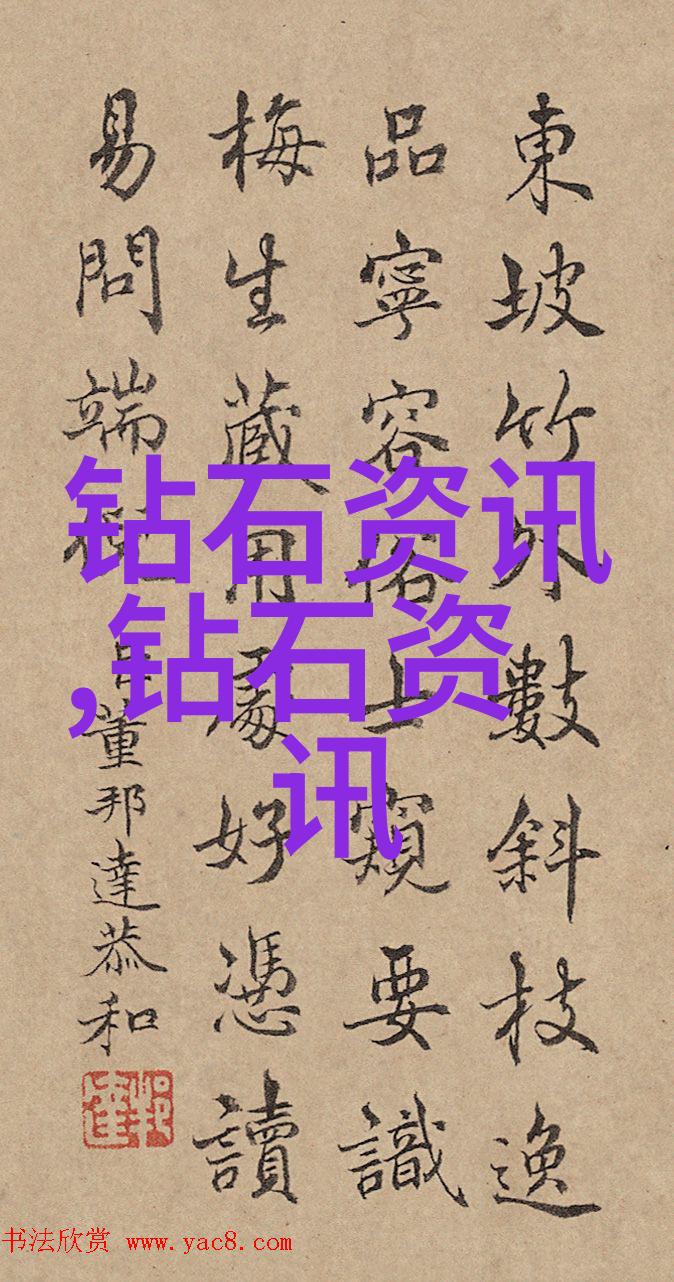 東坡竹外數斜枝逸
品寧容俗士窺要識
梅生藏用處好憑讀
易問端
臣董邦達恭和
钻石资讯
,钻石资
讯
书法欣赏 www.yac8.com